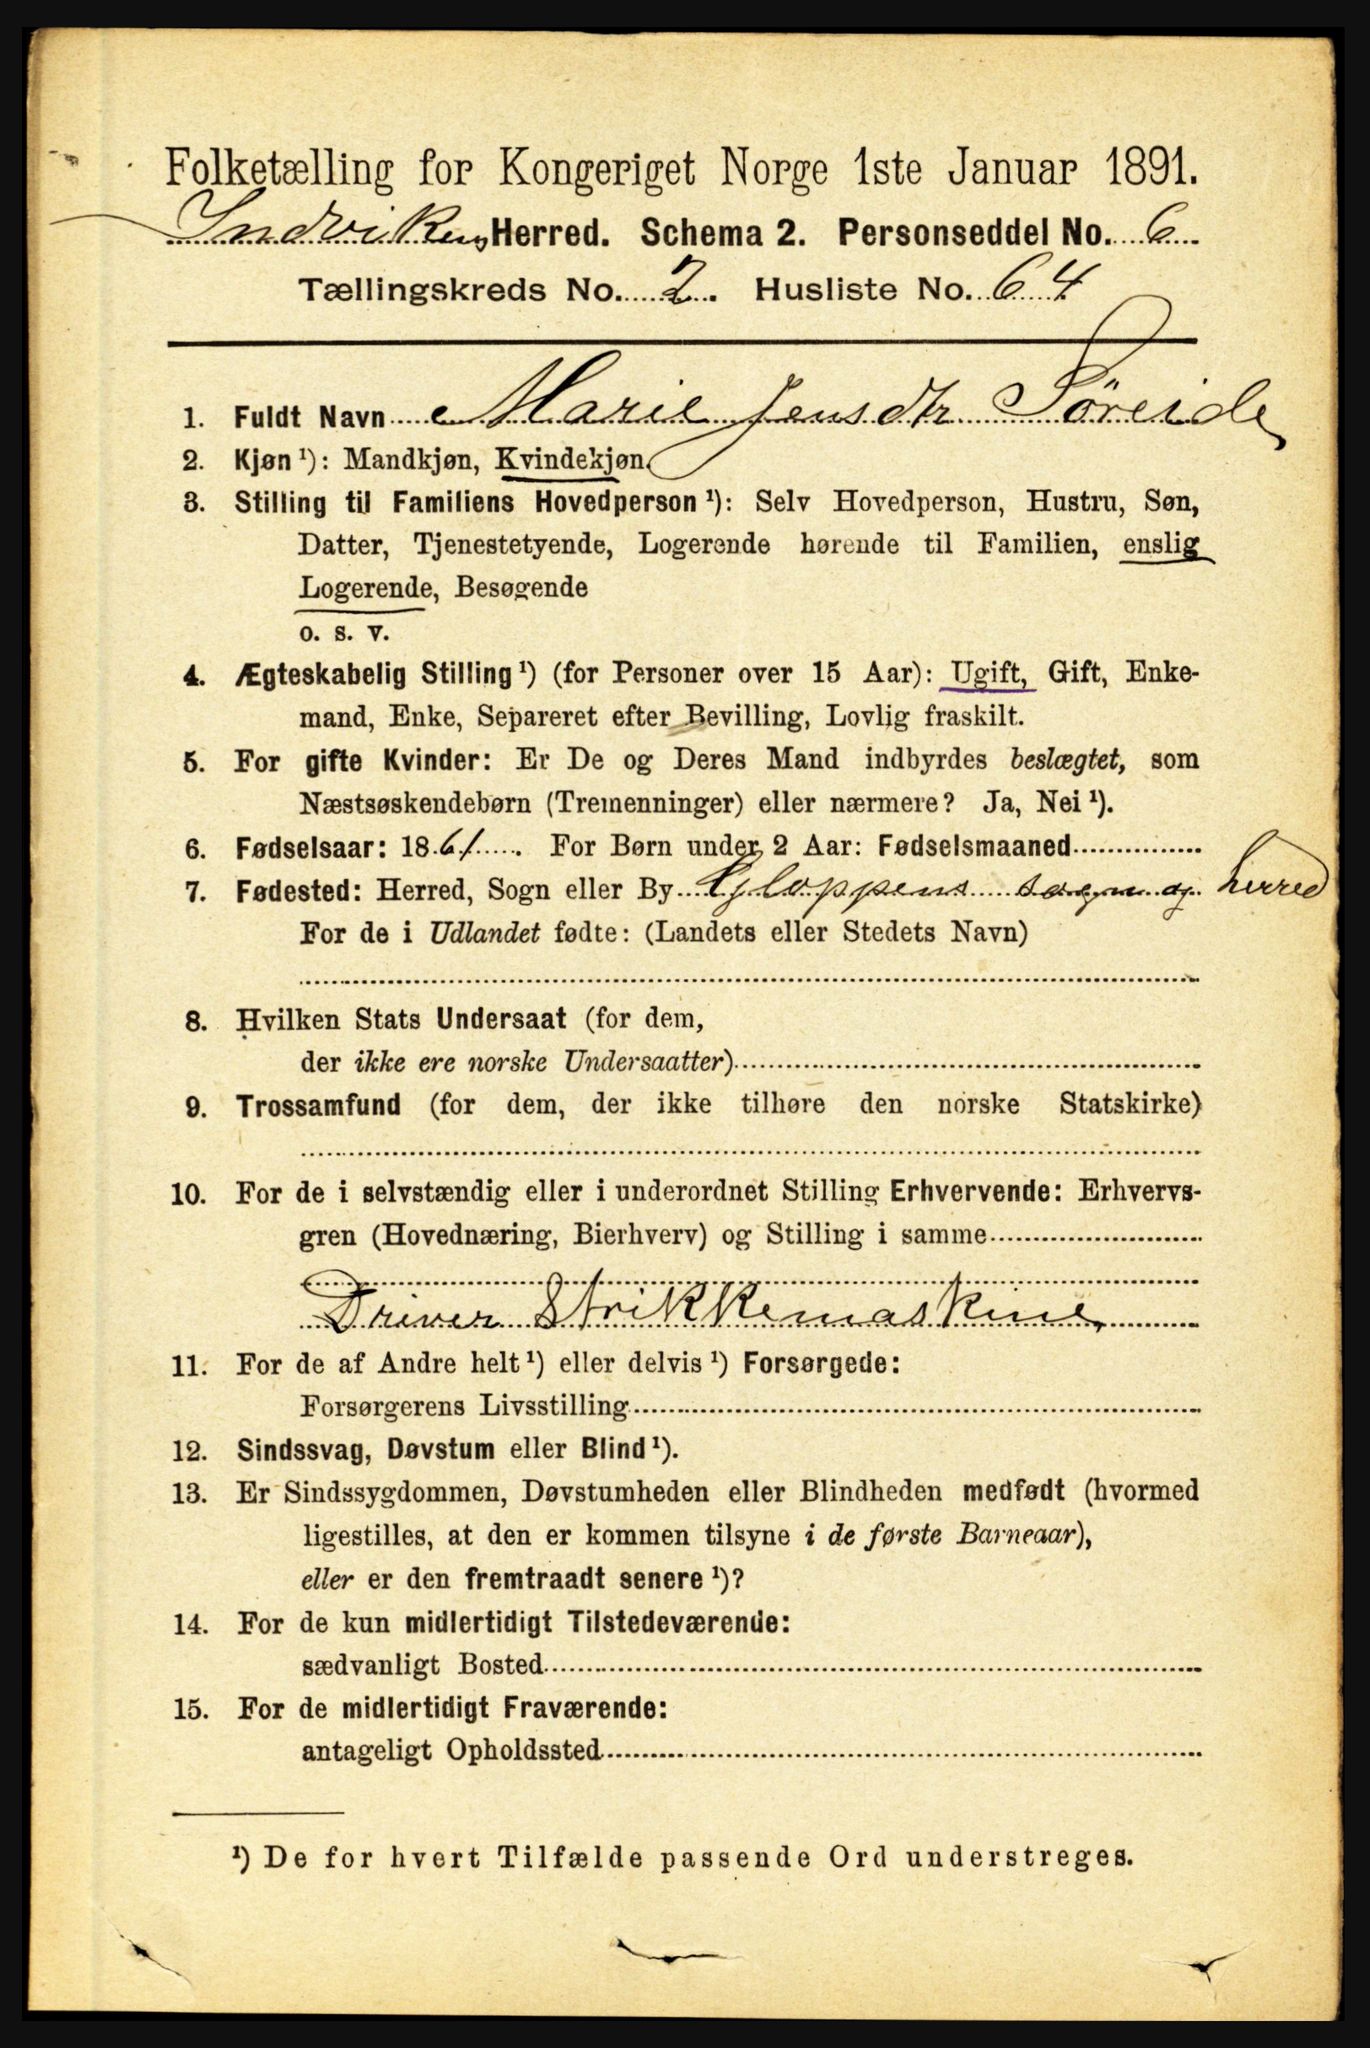 Folketælling for Kongeriget Norge 1ste Januar 1891.
Indvikens Herred. Schema 2. Personseddel No. 6
Tællingskreds No. 2. Husliste No. 64
1. Fuldt Navn Marie Jensdtr Söreide
2. Kjøn ¹): Mandkjøn, Kvindekjøn.
3. Stilling til Familiens Hovedperson ¹): Selv Hovedperson, Hustru, Søn,
Datter, Tjenestetyende, Logerende hørende til Familien, enslig
Logerende, Besøgende
o. s. v.
4. Ægteskabelig Stilling ¹) (for Personer over 15 Aar): Ugift, Gift, Enke-
mand, Enke, Separeret efter Bevilling, Lovlig fraskilt.
5. For gifte Kvinder: Er De og Deres Mand indbyrdes beslægtet, som
Næstsøskendebørn (Tremenninger) eller nærmere? Ja, Nei ¹).
6. Fødselsaar: 1861. For Børn under 2 Aar: Fødselsmaaned
7. Fødested: Herred, Sogn eller By Gloppens sogn og herred
For de i Udlandet fødte: (Landets eller Stedets Navn)
8. Hvilken Stats Undersaat (for dem,
der ikke ere norske Undersaatter)
9. Trossamfund (for dem, der ikke tilhøre den norske Statskirke)
10. For de i selvstændig eller i underordnet Stilling Erhvervende: Erhvervs-
gren (Hovednæring, Bierhverv) og Stilling i samme
Driver Strikkemaskine
11. For de af Andre helt ¹) eller delvis ¹) Forsørgede:
Forsørgerens Livsstilling
12. Sindssvag, Døvstum eller Blind ¹).
13. Er Sindssygdommen, Døvstumheden eller Blindheden medfødt (hvormed
ligestilles, at den er kommen tilsyne i de første Barneaar),
eller er den fremtraadt senere ¹)?
14. For de kun midlertidigt Tilstedeværende:
sædvanligt Bosted
15. For de midlertidigt Fraværende:
antageligt Opholdssted
¹) De for hvert Tilfælde passende Ord understreges.